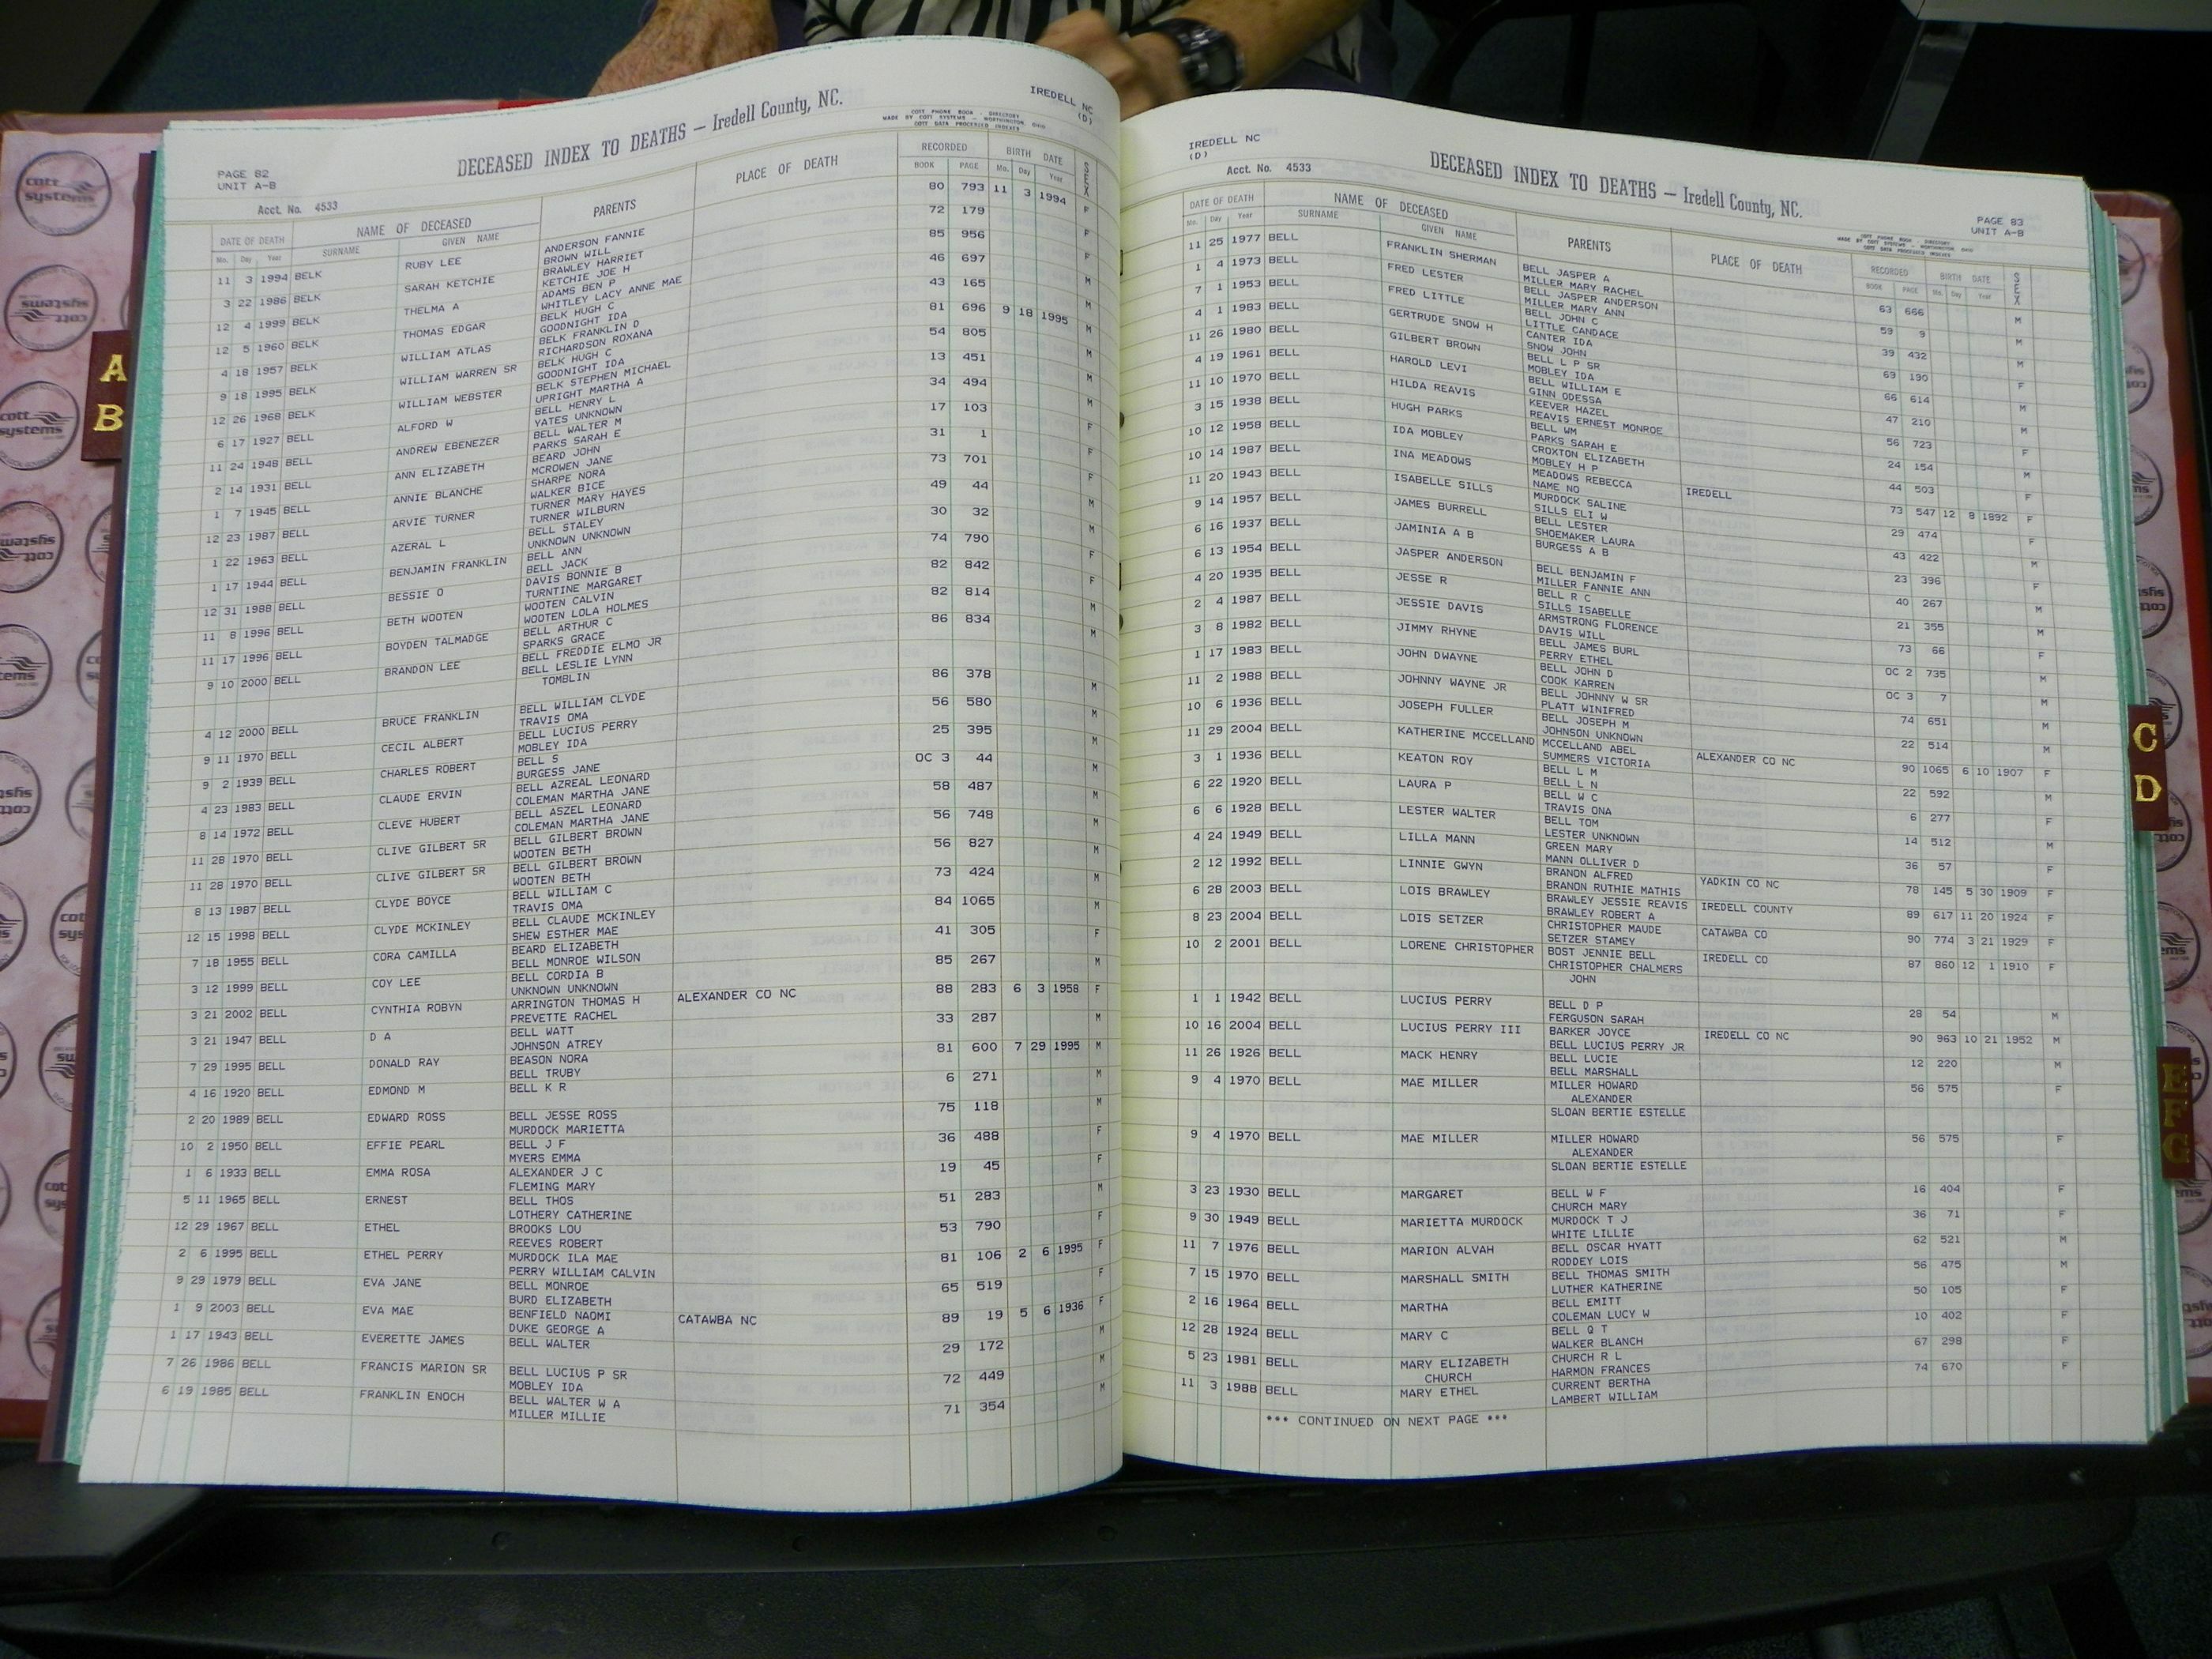 IREDELL NC
(D)
DECEASED INDEX TO DEATHS — Iredell County, NC.
COTT PHONE BOOK - DIRECTORY
MADE BY COTT SYSTEMS - WORTHINGTON, OHIO
COTT DATA PROCESSED INDEXES
PAGE 82
UNIT A-B
Acct. No. 4533
DATE OF DEATH NAME OF DECEASED PARENTS PLACE OF DEATH RECORDED BIRTH DATE SEX
Mo. Day Year SURNAME GIVEN NAME BOOK PAGE Mo. Day Year
11 3 1994 BELK RUBY LEE ANDERSON FANNIE 80 793 11 3 1994 F
BROWN WILL
3 22 1986 BELK SARAH KETCHIE BRAWLEY HARRIET 72 179 F
KETCHIE JOE H
12 4 1999 BELK THELMA A ADAMS BEN P 85 956 F
WHITLEY LACY ANNE MAE
12 5 1960 BELK THOMAS EDGAR BELK HUGH C 46 697 M
GOODNIGHT IDA
4 18 1957 BELK WILLIAM ATLAS BELK FRANKLIN D 43 165 M
RICHARDSON ROXANA
9 18 1995 BELK WILLIAM WARREN SR BELK HUGH C 81 696 9 18 1995 M
GOODNIGHT IDA
12 26 1968 BELK WILLIAM WEBSTER BELK STEPHEN MICHAEL 54 805 M
UPRIGHT MARTHA A
6 17 1927 BELL ALFORD W BELL HENRY L 13 451 M
YATES UNKNOWN
11 24 1948 BELL ANDREW EBENEZER BELL WALTER M 34 494 M
PARKS SARAH E
2 14 1931 BELL ANN ELIZABETH BEARD JOHN 17 103 F
MCROWEN JANE
1 7 1945 BELL ANNIE BLANCHE SHARPE NORA 31 1 F
WALKER BICE
12 23 1987 BELL ARVIE TURNER TURNER MARY HAYES 73 701 F
TURNER WILBURN
1 22 1963 BELL AZERAL L BELL STALEY 49 44 M
UNKNOWN UNKNOWN
1 17 1944 BELL BENJAMIN FRANKLIN BELL ANN 30 32 M
BELL JACK
12 31 1988 BELL BESSIE O DAVIS BONNIE B 74 790 F
TURNTINE MARGARET
11 8 1996 BELL BETH WOOTEN WOOTEN CALVIN 82 842 F
WOOTEN LOLA HOLMES
11 17 1996 BELL BOYDEN TALMADGE BELL ARTHUR C 82 814 M
SPARKS GRACE
9 10 2000 BELL BRANDON LEE BELL FREDDIE ELMO JR 86 834 M
BELL LESLIE LYNN
TOMBLIN
4 12 2000 BELL BRUCE FRANKLIN BELL WILLIAM CLYDE 86 378 M
TRAVIS OMA
9 11 1970 BELL CECIL ALBERT BELL LUCIUS PERRY 56 580 M
MOBLEY IDA
9 2 1939 BELL CHARLES ROBERT BELL S 25 395 M
BURGESS JANE
4 23 1983 BELL CLAUDE ERVIN BELL AZREAL LEONARD OC 3 44 M
COLEMAN MARTHA JANE
8 14 1972 BELL CLEVE HUBERT BELL ASZEL LEONARD 58 487 M
COLEMAN MARTHA JANE
11 28 1970 BELL CLIVE GILBERT SR BELL GILBERT BROWN 56 748 M
WOOTEN BETH
11 28 1970 BELL CLIVE GILBERT SR BELL GILBERT BROWN 56 827 M
WOOTEN BETH
8 13 1987 BELL CLYDE BOYCE BELL WILLIAM C 73 424 M
TRAVIS OMA
12 15 1998 BELL CLYDE MCKINLEY BELL CLAUDE MCKINLEY 84 1065 M
SHEW ESTHER MAE
7 18 1955 BELL CORA CAMILLA BEARD ELIZABETH 41 305 F
BELL MONROE WILSON
3 12 1999 BELL COY LEE BELL CORDIA B 85 267 M
UNKNOWN UNKNOWN
3 21 2002 BELL CYNTHIA ROBYN ARRINGTON THOMAS H ALEXANDER CO NC 88 283 6 3 1958 F
PREVETTE RACHEL
3 21 1947 BELL D A BELL WATT 33 287 M
JOHNSON ATREY
7 29 1995 BELL DONALD RAY BEASON NORA 81 600 7 29 1995 M
BELL TRUBY
4 16 1920 BELL EDMOND M BELL K R 6 271 M
2 20 1989 BELL EDWARD ROSS BELL JESSE ROSS 75 118 M
MURDOCK MARIETTA
10 2 1950 BELL EFFIE PEARL BELL J F 36 488 F
MYERS EMMA
1 6 1933 BELL EMMA ROSA ALEXANDER J C 19 45 F
FLEMING MARY
5 11 1965 BELL ERNEST BELL THOS 51 283 M
LOTHERY CATHERINE
12 29 1967 BELL ETHEL BROOKS LOU 53 790 F
REEVES ROBERT
2 6 1995 BELL ETHEL PERRY MURDOCK ILA MAE 81 106 2 6 1995 F
PERRY WILLIAM CALVIN
9 29 1979 BELL EVA JANE BELL MONROE 65 519 F
BURD ELIZABETH
1 9 2003 BELL EVA MAE BENFIELD NAOMI CATAWBA NC 89 19 5 6 1936 F
DUKE GEORGE A
1 17 1943 BELL EVERETTE JAMES BELL WALTER 29 172 M
7 26 1986 BELL FRANCIS MARION SR BELL LUCIUS P SR 72 449 M
MOBLEY IDA
6 19 1985 BELL FRANKLIN ENOCH BELL WALTER W A 71 354 M
MILLER MILLIE
IREDELL NC
(D)
Acct. No. 4533
DECEASED INDEX TO DEATHS — Iredell County, NC.
PAGE 83
UNIT A-B
COTT PHONE BOOK - DIRECTORY
MADE BY COTT SYSTEMS - WORTHINGTON, OHIO
COTT DATA PROCESSED INDEXES
DATE OF DEATH NAME OF DECEASED PARENTS PLACE OF DEATH RECORDED BIRTH DATE SEX
Mo. Day Year SURNAME GIVEN NAME BOOK PAGE Mo. Day Year
11 25 1977 BELL FRANKLIN SHERMAN BELL JASPER A 63 666 M
MILLER MARY RACHEL
1 4 1973 BELL FRED LESTER BELL JASPER ANDERSON 59 9 M
MILLER MARY ANN
7 1 1953 BELL FRED LITTLE BELL JOHN C 39 432 M
LITTLE CANDACE
4 1 1983 BELL GERTRUDE SNOW H CANTER IDA 69 190 F
SNOW JOHN
11 26 1980 BELL GILBERT BROWN BELL L P SR 66 614 M
MOBLEY IDA
4 19 1961 BELL HAROLD LEVI BELL WILLIAM E 47 210 M
GINN ODESSA
11 10 1970 BELL HILDA REAVIS KEEVER HAZEL 56 723 F
REAVIS ERNEST MONROE
3 15 1938 BELL HUGH PARKS BELL WM 24 154 M
PARKS SARAH E
10 12 1958 BELL IDA MOBLEY CROXTON ELIZABETH 44 503 F
MOBLEY H P
10 14 1987 BELL INA MEADOWS MEADOWS REBECCA IREDELL 73 547 12 8 1892 F
NAME NO
11 20 1943 BELL ISABELLE SILLS MURDOCK SALINE 29 474 F
SILLS ELI W
9 14 1957 BELL JAMES BURRELL BELL LESTER 43 422 M
SHOEMAKER LAURA
6 16 1937 BELL JAMINIA A B BURGESS A B 23 396 F
6 13 1954 BELL JASPER ANDERSON BELL BENJAMIN F 40 267 M
MILLER FANNIE ANN
4 20 1935 BELL JESSE R BELL R C 21 355 M
SILLS ISABELLE
2 4 1987 BELL JESSIE DAVIS ARMSTRONG FLORENCE 73 66 F
DAVIS WILL
3 8 1982 BELL JIMMY RHYNE BELL JAMES BURL OC 2 735 M
PERRY ETHEL
1 17 1983 BELL JOHN DWAYNE BELL JOHN D OC 3 7 M
COOK KARREN
11 2 1988 BELL JOHNNY WAYNE JR BELL JOHNNY W SR 74 651 M
PLATT WINIFRED
10 6 1936 BELL JOSEPH FULLER BELL JOSEPH M 22 514 M
JOHNSON UNKNOWN
11 29 2004 BELL KATHERINE MCCELLAND MCCELLAND ABEL ALEXANDER CO NC 90 1065 6 10 1907 F
SUMMERS VICTORIA
3 1 1936 BELL KEATON ROY BELL L M 22 592 M
BELL L N
6 22 1920 BELL LAURA P BELL W C 6 277 F
TRAVIS ONA
6 6 1928 BELL LESTER WALTER BELL TOM 14 512 M
LESTER UNKNOWN
4 24 1949 BELL LILLA MANN GREEN MARY 36 57 F
MANN OLLIVER D
2 12 1992 BELL LINNIE GWYN BRANON ALFRED YADKIN CO NC 78 145 5 30 1909 F
BRANON RUTHIE MATHIS
6 28 2003 BELL LOIS BRAWLEY BRAWLEY JESSIE REAVIS IREDELL COUNTY 89 617 11 20 1924 F
BRAWLEY ROBERT A
8 23 2004 BELL LOIS SETZER CHRISTOPHER MAUDE CATAWBA CO 90 774 3 21 1929 F
SETZER STAMEY
10 2 2001 BELL LORENE CHRISTOPHER BOST JENNIE BELL IREDELL CO 87 860 12 1 1910 F
CHRISTOPHER CHALMERS
JOHN
1 1 1942 BELL LUCIUS PERRY BELL D P 28 54 M
FERGUSON SARAH
10 16 2004 BELL LUCIUS PERRY III BARKER JOYCE IREDELL CO NC 90 963 10 21 1952 M
BELL LUCIUS PERRY JR
11 26 1926 BELL MACK HENRY BELL LUCIE 12 220 M
BELL MARSHALL
9 4 1970 BELL MAE MILLER MILLER HOWARD 56 575 F
ALEXANDER
SLOAN BERTIE ESTELLE
9 4 1970 BELL MAE MILLER MILLER HOWARD 56 575 F
ALEXANDER
SLOAN BERTIE ESTELLE
3 23 1930 BELL MARGARET BELL W F 16 404 F
CHURCH MARY
9 30 1949 BELL MARIETTA MURDOCK MURDOCK T J 36 71 F
WHITE LILLIE
11 7 1976 BELL MARION ALVAH BELL OSCAR HYATT 62 521 M
RODDEY LOIS
7 15 1970 BELL MARSHALL SMITH BELL THOMAS SMITH 56 475 M
LUTHER KATHERINE
2 16 1964 BELL MARTHA BELL EMITT 50 105 F
COLEMAN LUCY W
12 28 1924 BELL MARY C BELL Q T 10 402 F
WALKER BLANCH
5 23 1981 BELL MARY ELIZABETH CHURCH R L 67 298 F
CHURCH HARMON FRANCES
11 3 1988 BELL MARY ETHEL CURRENT BERTHA 74 670 F
LAMBERT WILLIAM
*** CONTINUED ON NEXT PAGE ***
A
B
C
D
E
F
G
cott systems